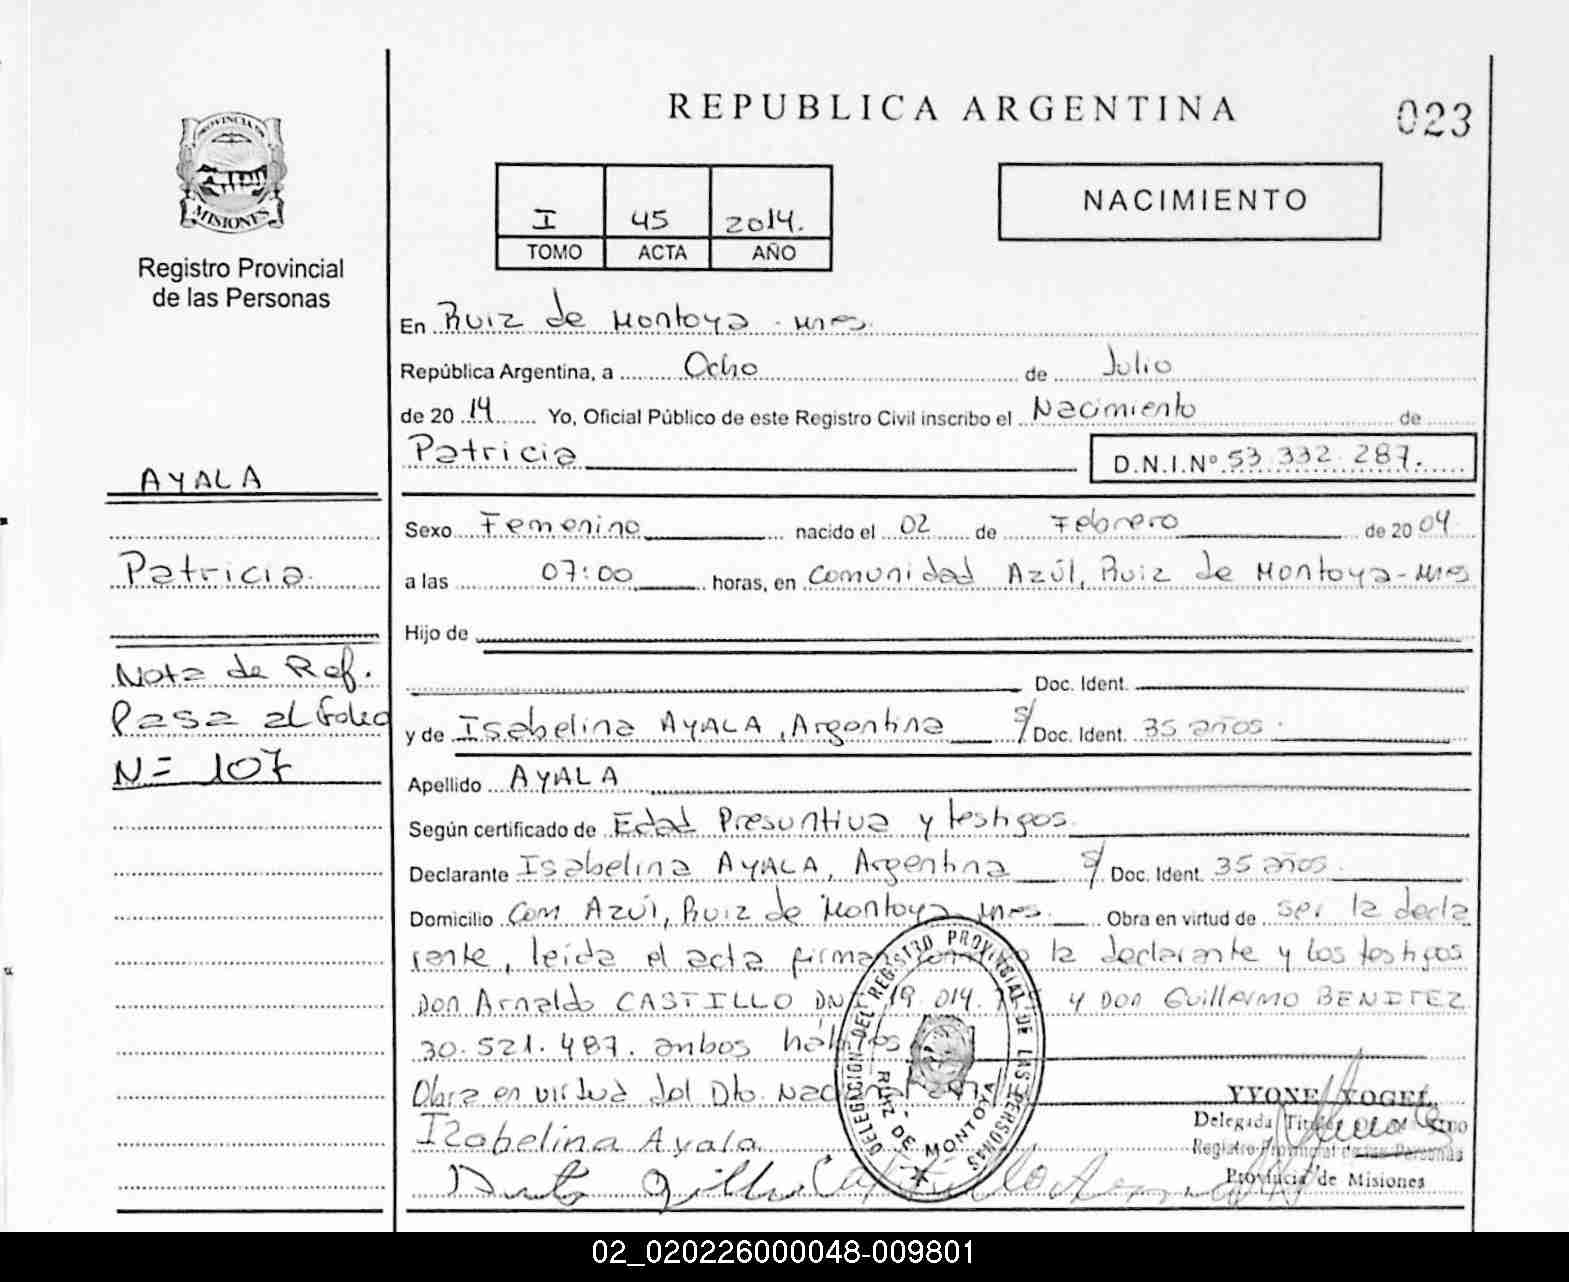 REPUBLICA ARGENTINA
023
PROVINCIA DE
MISIONES
Registro Provincial
de las Personas
I 45 2014.
TOMO ACTA AÑO
NACIMIENTO
En Ruiz de Montoya - Mnes.
República Argentina, a Ocho de Julio
de 20 14 Yo, Oficial Público de este Registro Civil inscribo el Nacimiento de
Patricia D.N.I.Nº 53 332 287.
AYALA
Sexo Femenino nacido el 02 de Febrero de 20 04
Patricia
a las 07:00 horas, en Comunidad Azúl, Ruiz de Montoya - Mnes
Hijo de
Nota de Ref.
Doc. Ident.
Pasa al folio
y de Isabelina AYALA, Argentina s/ Doc. Ident. 35 años
N= 107
Apellido AYALA
Según certificado de Edad Presuntiva y testigos
Declarante Isabelina AYALA, Argentina s/ Doc. Ident. 35 años
Domicilio Com Azúl, Ruiz de Montoya Mnes. Obra en virtud de ser la decla
rante, leida el acta la declarante y los testigos
Don Arnaldo CASTILLO DNI 19.014. y Don Guillermo BENITEZ
30.521.487. ambos
Obra en virtud del Dto.
DELEGACION DEL REGISTRO PROVINCIAL DE LAS PERSONAS
RUIZ DE MONTOYA
YVONE VOGEL
Delegada
Izabelina Ayala
Registro Provincial de las Personas
Provincia de Misiones
02_020226000048-009801